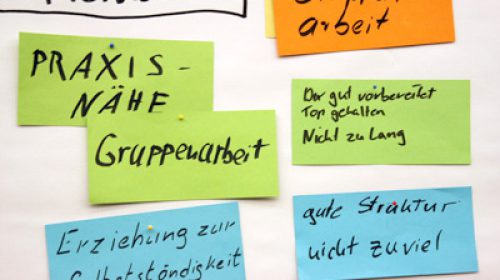 PRAXIS-
NÄHE
Gruppenarbeit
Erziehung zur
Selbstständigkeit
arbeit
Der gut vorbereitet
Top gehalten
Nicht zu lang
gute Struktur
nicht zuviel